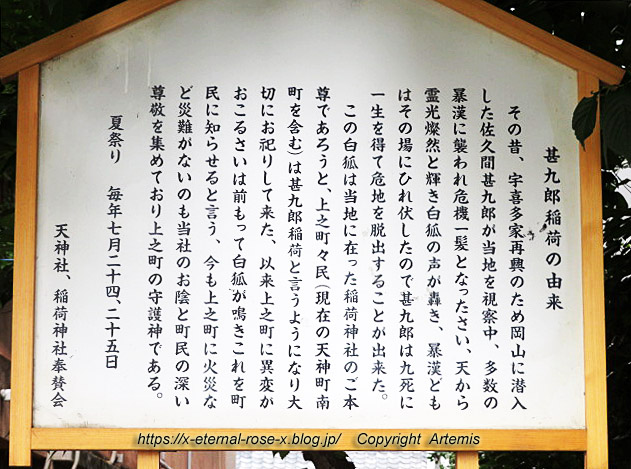 甚九郎稲荷の由来
その昔、宇喜多家再興のため岡山に潜入
した佐久間甚九郎が当地を視察中、多数の
暴漢に襲われ危機一髪となったさい、天から
霊光燦然と輝き白狐の声が轟き、暴漢ども
はその場にひれ伏したので甚九郎は九死に
一生を得て危地を脱出することが出来た。
この白狐は当地に在った稲荷神社のご本
尊であろうと、上之町々民(現在の天神町南
町を含む)は甚九郎稲荷と言うようになり大
切にお祀りして来た、以来上之町に異変が
おこるさいは前もって白狐が鳴きこれを町
民に知らせると言う、今も上之町に火災な
ど災難がないのも当社のお陰と町民の深い
尊敬を集めており上之町の守護神である。
夏祭り 毎年七月二十四、二十五日
天神社、稲荷神社奉賛会
https://x-eternal-rose-x.blog.jp/ Copyright Artemis